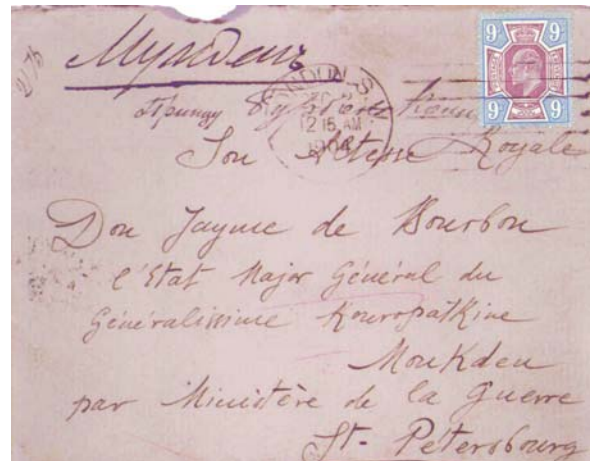 Мукденъ
LONDON.S.W.
12 15 AM
9 9
Son Altesse Royale
9 9
Don Jayme de Bourbon
l'Etat Major Général du
Généralissime Kouropatkine
Moukden
par Ministère de la Guerre
St- Pétersbourg